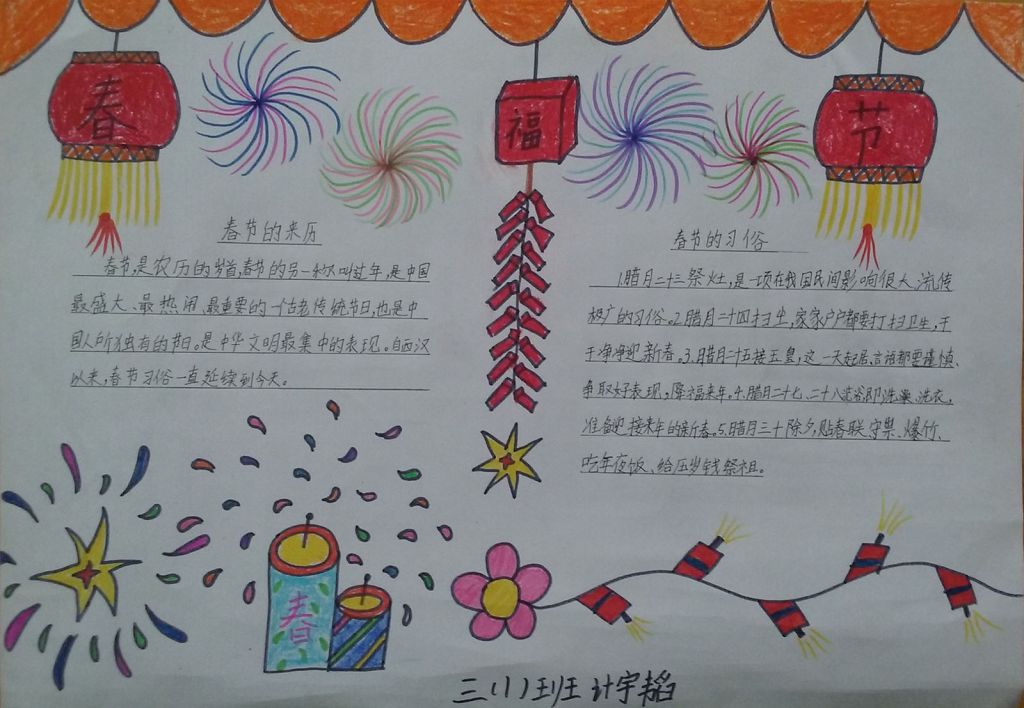 春
福
节
春节的来历
春节,是农历的岁首,春节的另一称叫过年,是中国
最盛大、最热闹、最重要的一个古老传统节日,也是中
国人所独有的节日。是中华文明最集中的表现。自西汉
以来,春节习俗一直延续到今天。
春节的习俗
1.腊月二十三祭灶,是一项在我国民间影响很大、流传
极广的习俗。2.腊月二十四扫尘,家家户户都要打扫卫生,干
干净净迎新春。3.腊月二十五接玉皇,这一天起居、言语都要谨慎、
争取好表现,降福来年。4.腊月二十七、二十八洗浴即洗澡、洗衣,
准备迎接来年的新春。5.腊月三十除夕,贴春联、守祟、爆竹、
吃年夜饭、给压岁钱、祭祖。
春
三(1)班 计宇韬